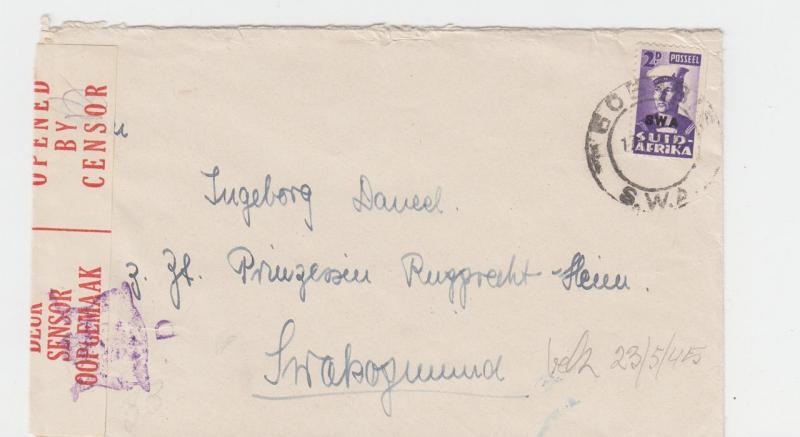 OPENED
BY
CENSOR
DEUR
SENSOR
OOPGEMAAK
D
2D POSSEEL
SWA
SUID-
AFRIKA
S.W.A.
Ingeborg Daneel.
z. Zt. Prinzessin Rupprecht-Heim.
Swakopmund
23/5/45